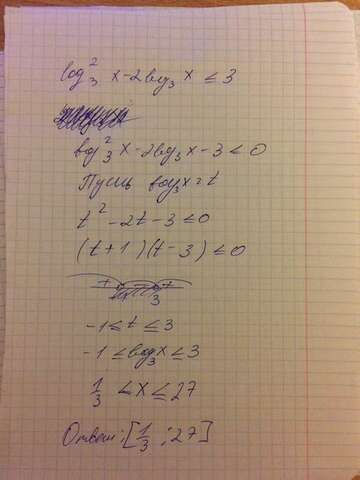 log₃² x - 2log₃ x ≤ 3
log₃² x - 2log₃ x - 3 ≤ 0
Пусть log₃x = t
t² - 2t - 3 ≤ 0
(t+1)(t-3) ≤ 0
+ - +
-1 3
-1 ≤ t ≤ 3
-1 ≤ log₃x ≤ 3
1/3 ≤ x ≤ 27
Ответ: [1/3 ; 27]